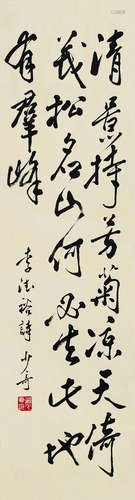 清景持芳菊凉天倚
茂松名山何必去此地
有群峰
李德裕诗少奇